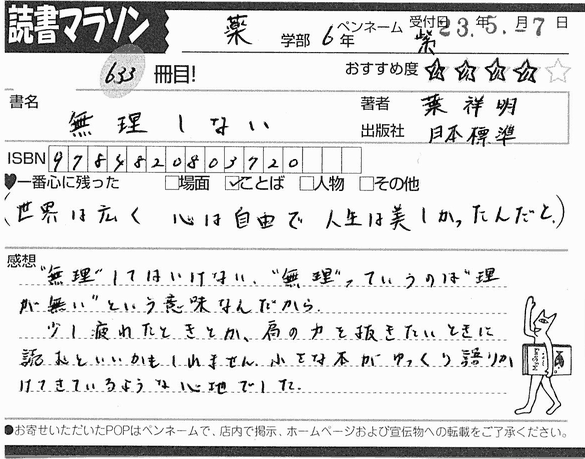 読書マラソン
薬 学部 6年 ペンネーム 紫 受付日 23.5.-7 年 月 日
633 冊目! おすすめ度 ★★★★☆
書名 無理しない
著者 葉 祥明
出版社 日本標準
ISBN 9784820803720
♥一番心に残った □場面 ☑ことば □人物 □その他
(世界は広く 心は自由で 人生は美しかったんだと。)
感想
"無理"してはいけない、"無理"っていうのは"理
が無い"という意味なんだから。
少し疲れたときとか、肩の力を抜きたいときに
読むといいかもしれません。小さな本がゆっくり語りか
けてきているような心地でした。
●お寄せいただいたPOPはペンネームで、店内で掲示、ホームページおよび宣伝物への転載をご了承ください。